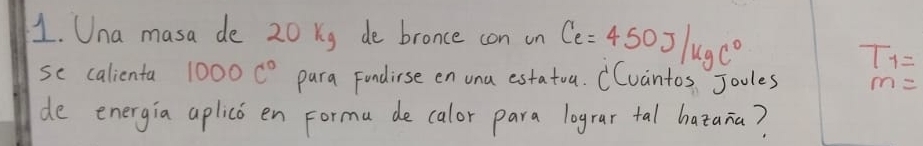 1. Una masa de 20 Kg de bronce con un Ce= 450J/kgC°
se calienta 1000 C° para Fundirse en una estatua. ¿Cuántos Joules
de energía aplicó en Forma de calor para lograr tal hazaña?
T1=
m=